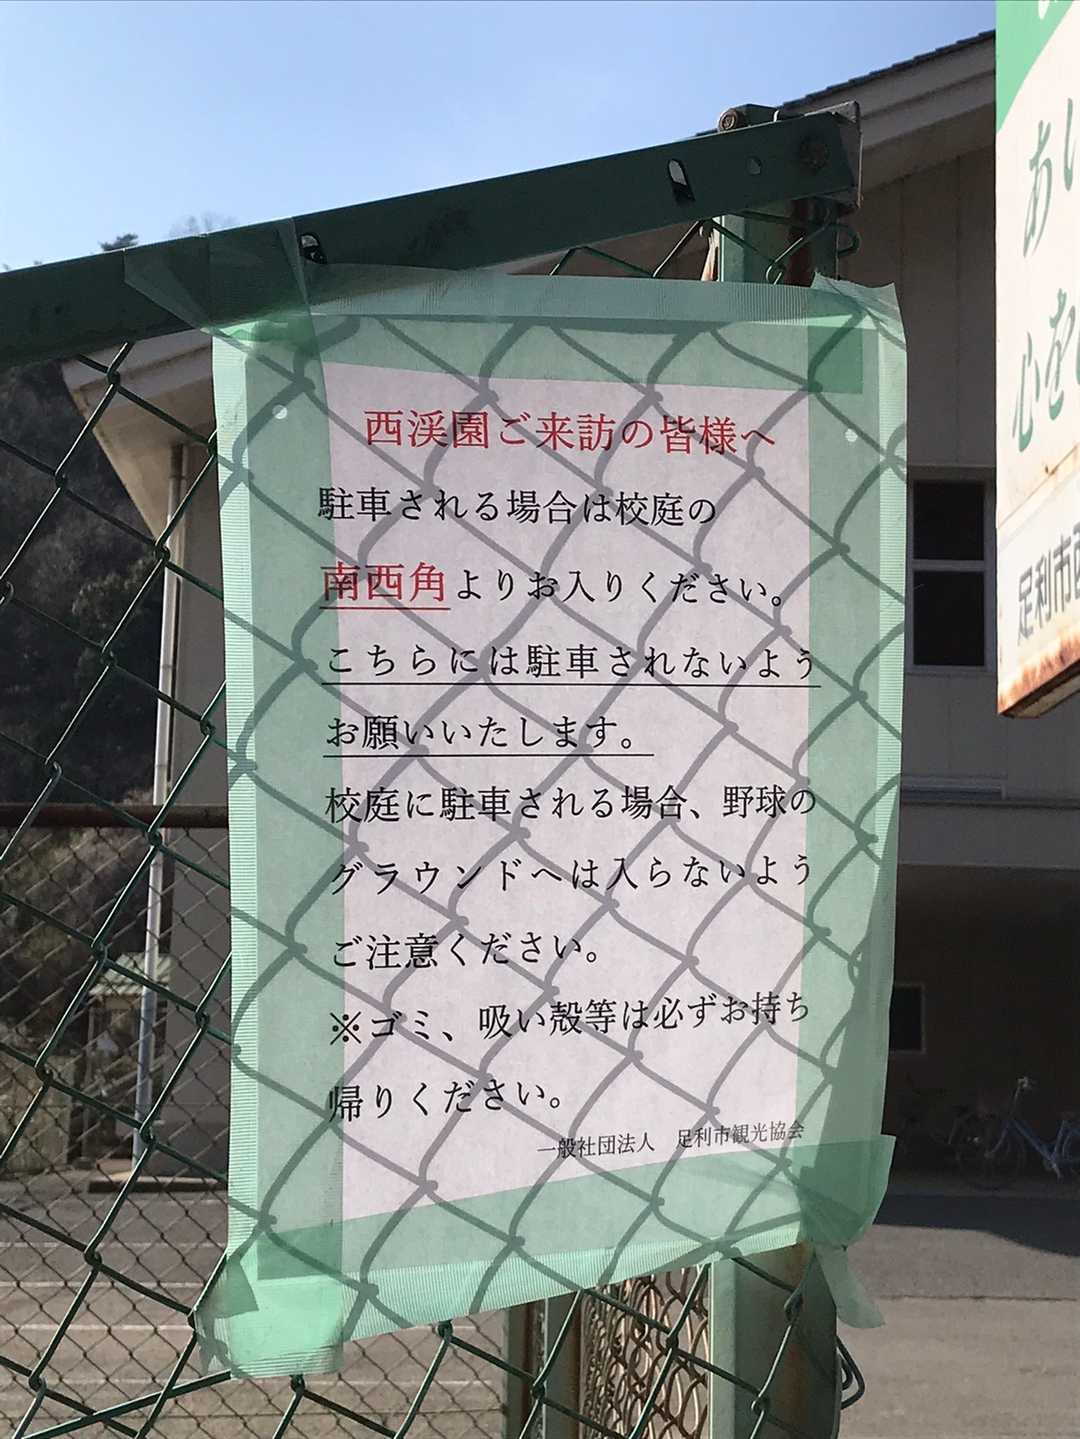 西渓園ご来訪の皆様へ
駐車される場合は校庭の
南西角よりお入りください。
こちらには駐車されないよう
お願いいたします。
校庭に駐車される場合、野球の
グラウンドへは入らないよう
ご注意ください。
※ゴミ、吸い殻等は必ずお持ち
帰りください。
一般社団法人　足利市観光協会
あい
心を
足利市西